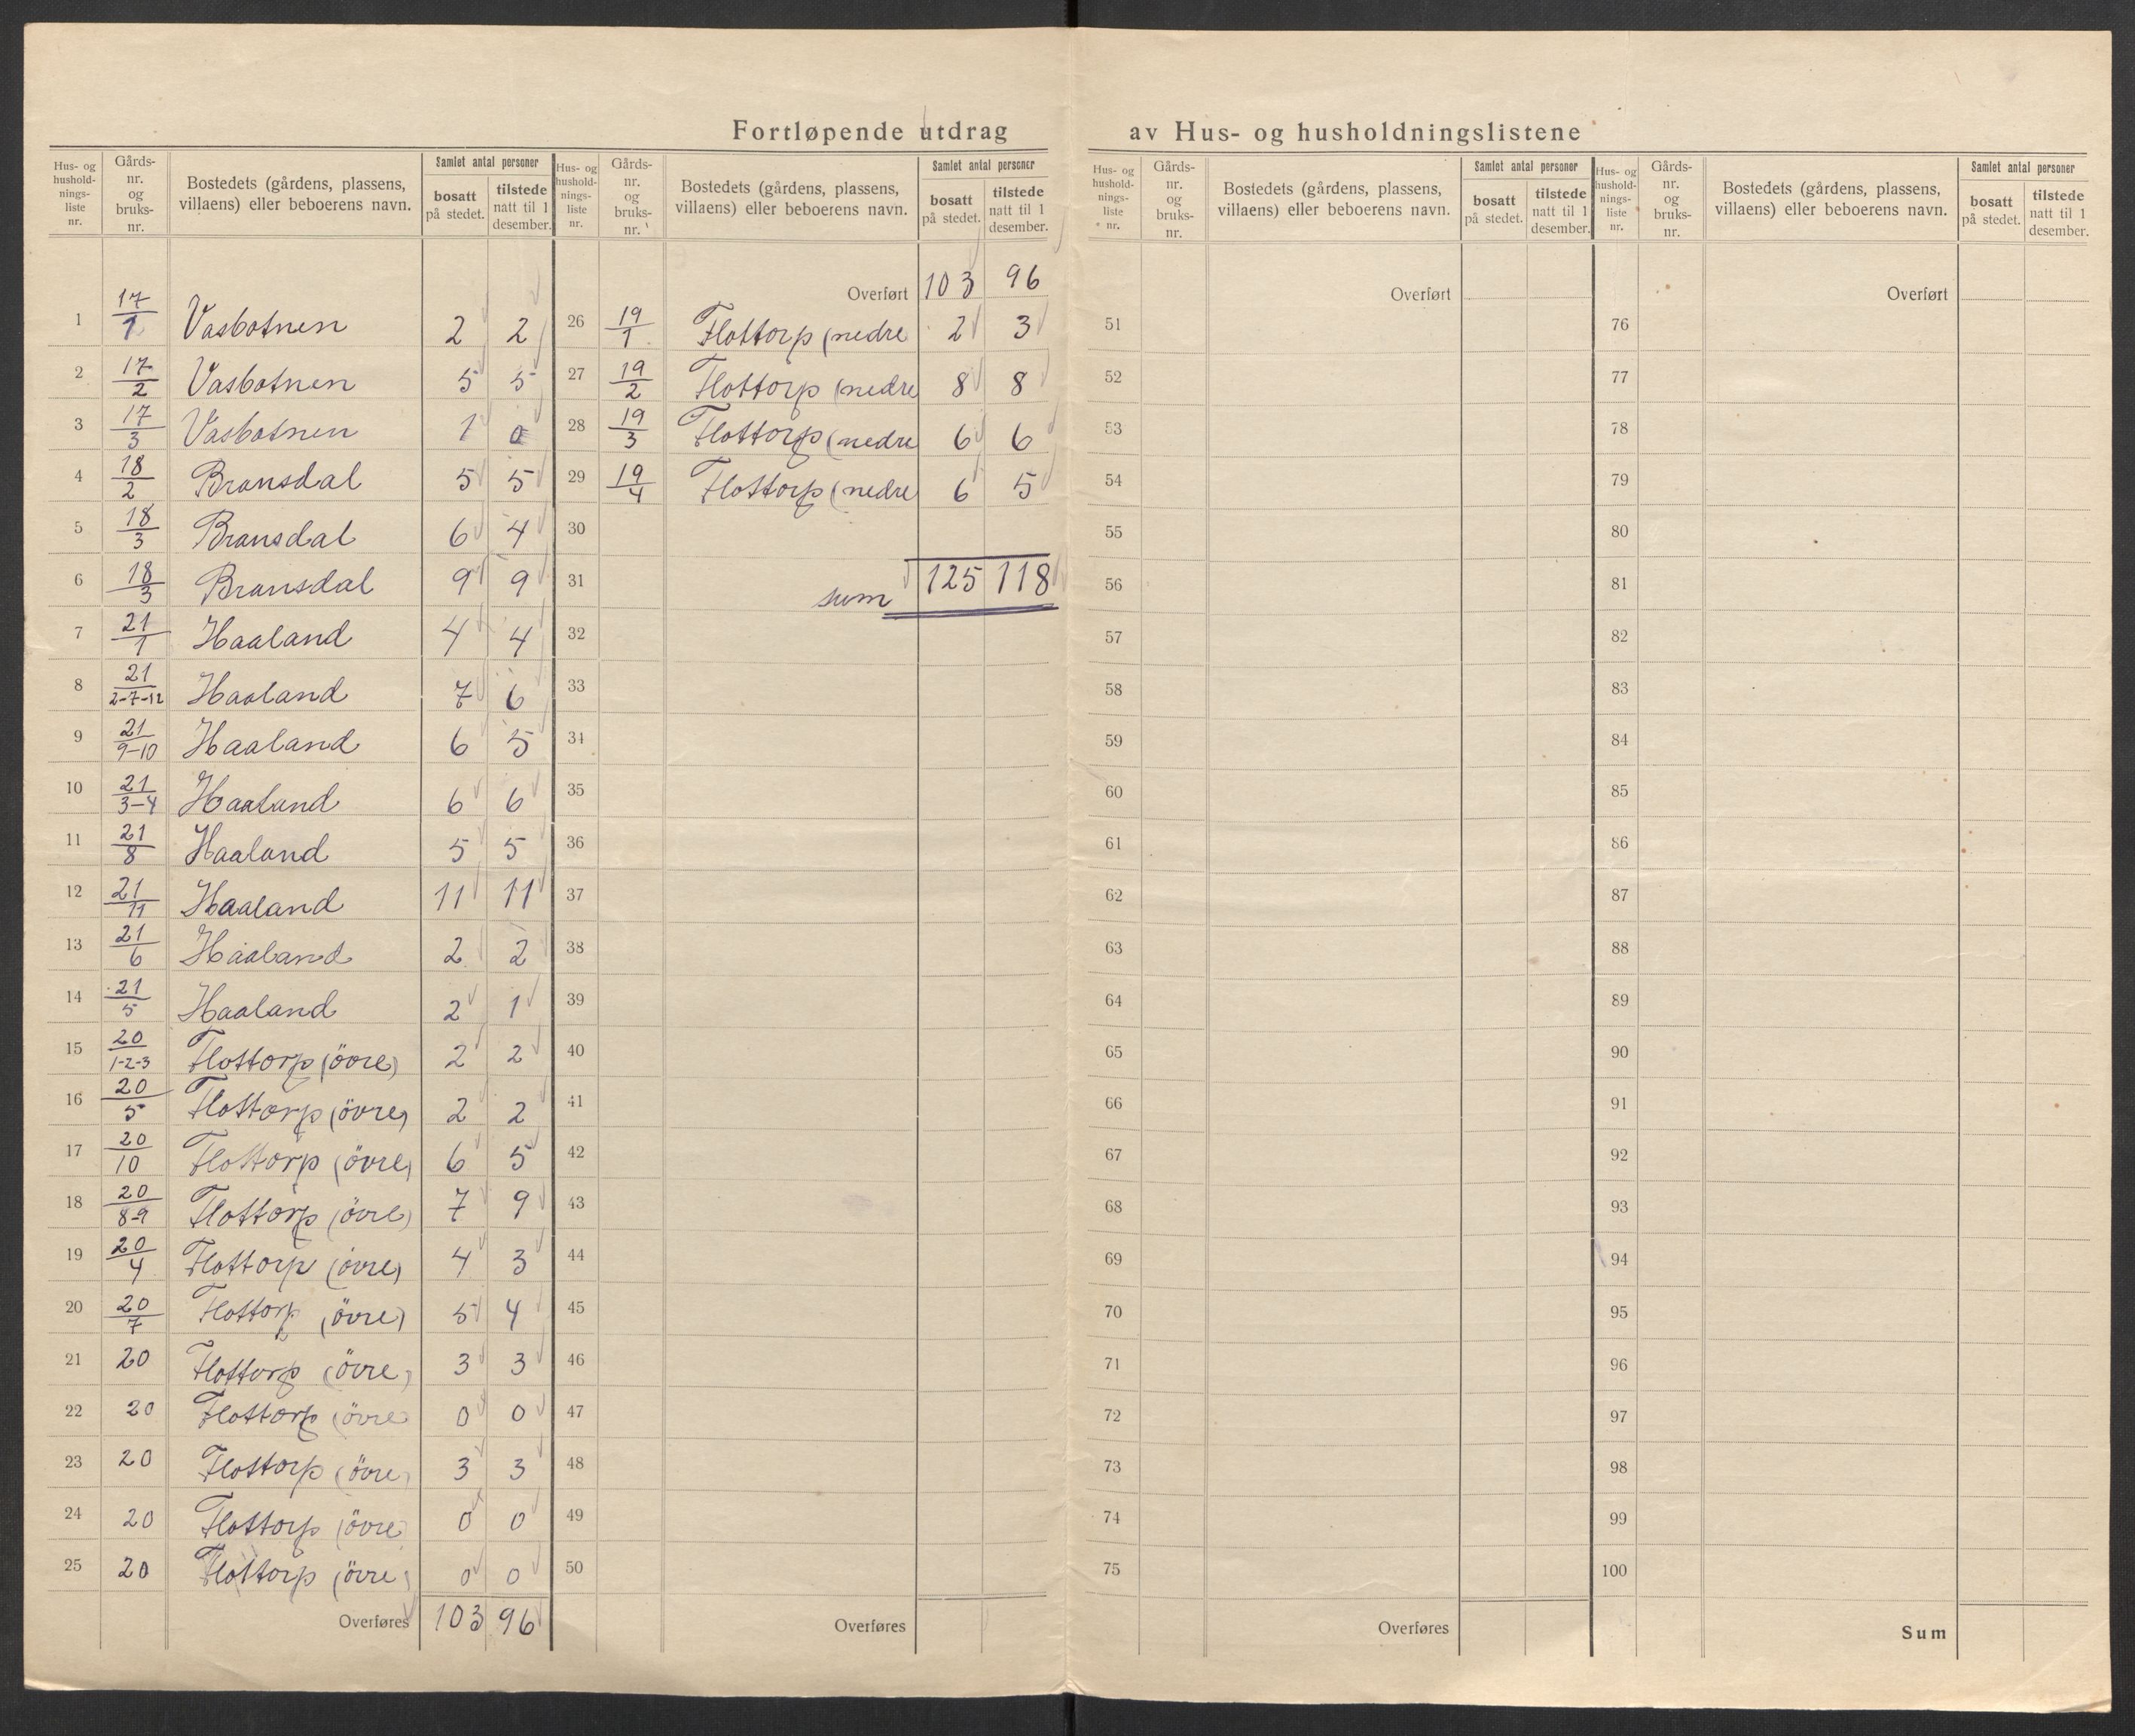 Fortløpende utdrag av Hus- og husholdningslistene
Hus- og husholdningsliste nr. | Gårdsnr. og bruksnr. | Bostedets (gårdens, plassens, villaens) eller beboerens navn. | Samlet antal personer: bosatt på stedet. | tilstede natt til 1 desember.
1 17/1 Vasbotnen 2 2
2 17/2 Vasbotnen 5 5
3 17/3 Vasbotnen 1 0
4 18/2 Bransdal 5 5
5 18/3 Bransdal 6 4
6 18/3 Bransdal 9 9
7 21/1 Haaland 4 4
8 21/2-7-12 Haaland 7 6
9 21/9-10 Haaland 6 5
10 21/3-4 Haaland 6 6
11 21/8 Haaland 5 5
12 21/11 Haaland 11 11
13 21/6 Haaland 2 2
14 21/5 Haaland 2 1
15 20/1-2-3 Flottorp (övre) 2 2
16 20/5 Flottorp (övre) 2 2
17 20/10 Flottorp (övre) 6 5
18 20/8-9 Flottorp (övre) 7 9
19 20/4 Flottorp (övre) 4 3
20 20/7 Flottorp (övre) 5 4
21 20 Flottorp (övre) 3 3
22 20 Flottorp (övre) 0 0
23 20 Flottorp (övre) 3 3
24 20 Flottorp (övre) 0 0
25 20 Flottorp (övre) 0 0
Overføres 103 96
Hus- og husholdningsliste nr. | Gårdsnr. og bruksnr. | Bostedets (gårdens, plassens, villaens) eller beboerens navn. | Samlet antal personer: bosatt på stedet. | tilstede natt til 1 desember.
Overført 103 96
26 19/1 Flottorp (nedre 2 3
27 19/2 Flottorp (nedre 8 8
28 19/3 Flottorp (nedre 6 6
29 19/4 Flottorp (nedre 6 5
30
31 sum 125 118
32
33
34
35
36
37
38
39
40
41
42
43
44
45
46
47
48
49
50
Overføres
Hus- og husholdningsliste nr. | Gårdsnr. og bruksnr. | Bostedets (gårdens, plassens, villaens) eller beboerens navn. | Samlet antal personer: bosatt på stedet. | tilstede natt til 1 desember.
Overført
51
52
53
54
55
56
57
58
59
60
61
62
63
64
65
66
67
68
69
70
71
72
73
74
75
Overføres
Hus- og husholdningsliste nr. | Gårdsnr. og bruksnr. | Bostedets (gårdens, plassens, villaens) eller beboerens navn. | Samlet antal personer: bosatt på stedet. | tilstede natt til 1 desember.
Overført
76
77
78
79
80
81
82
83
84
85
86
87
88
89
90
91
92
93
94
95
96
97
98
99
100
Sum